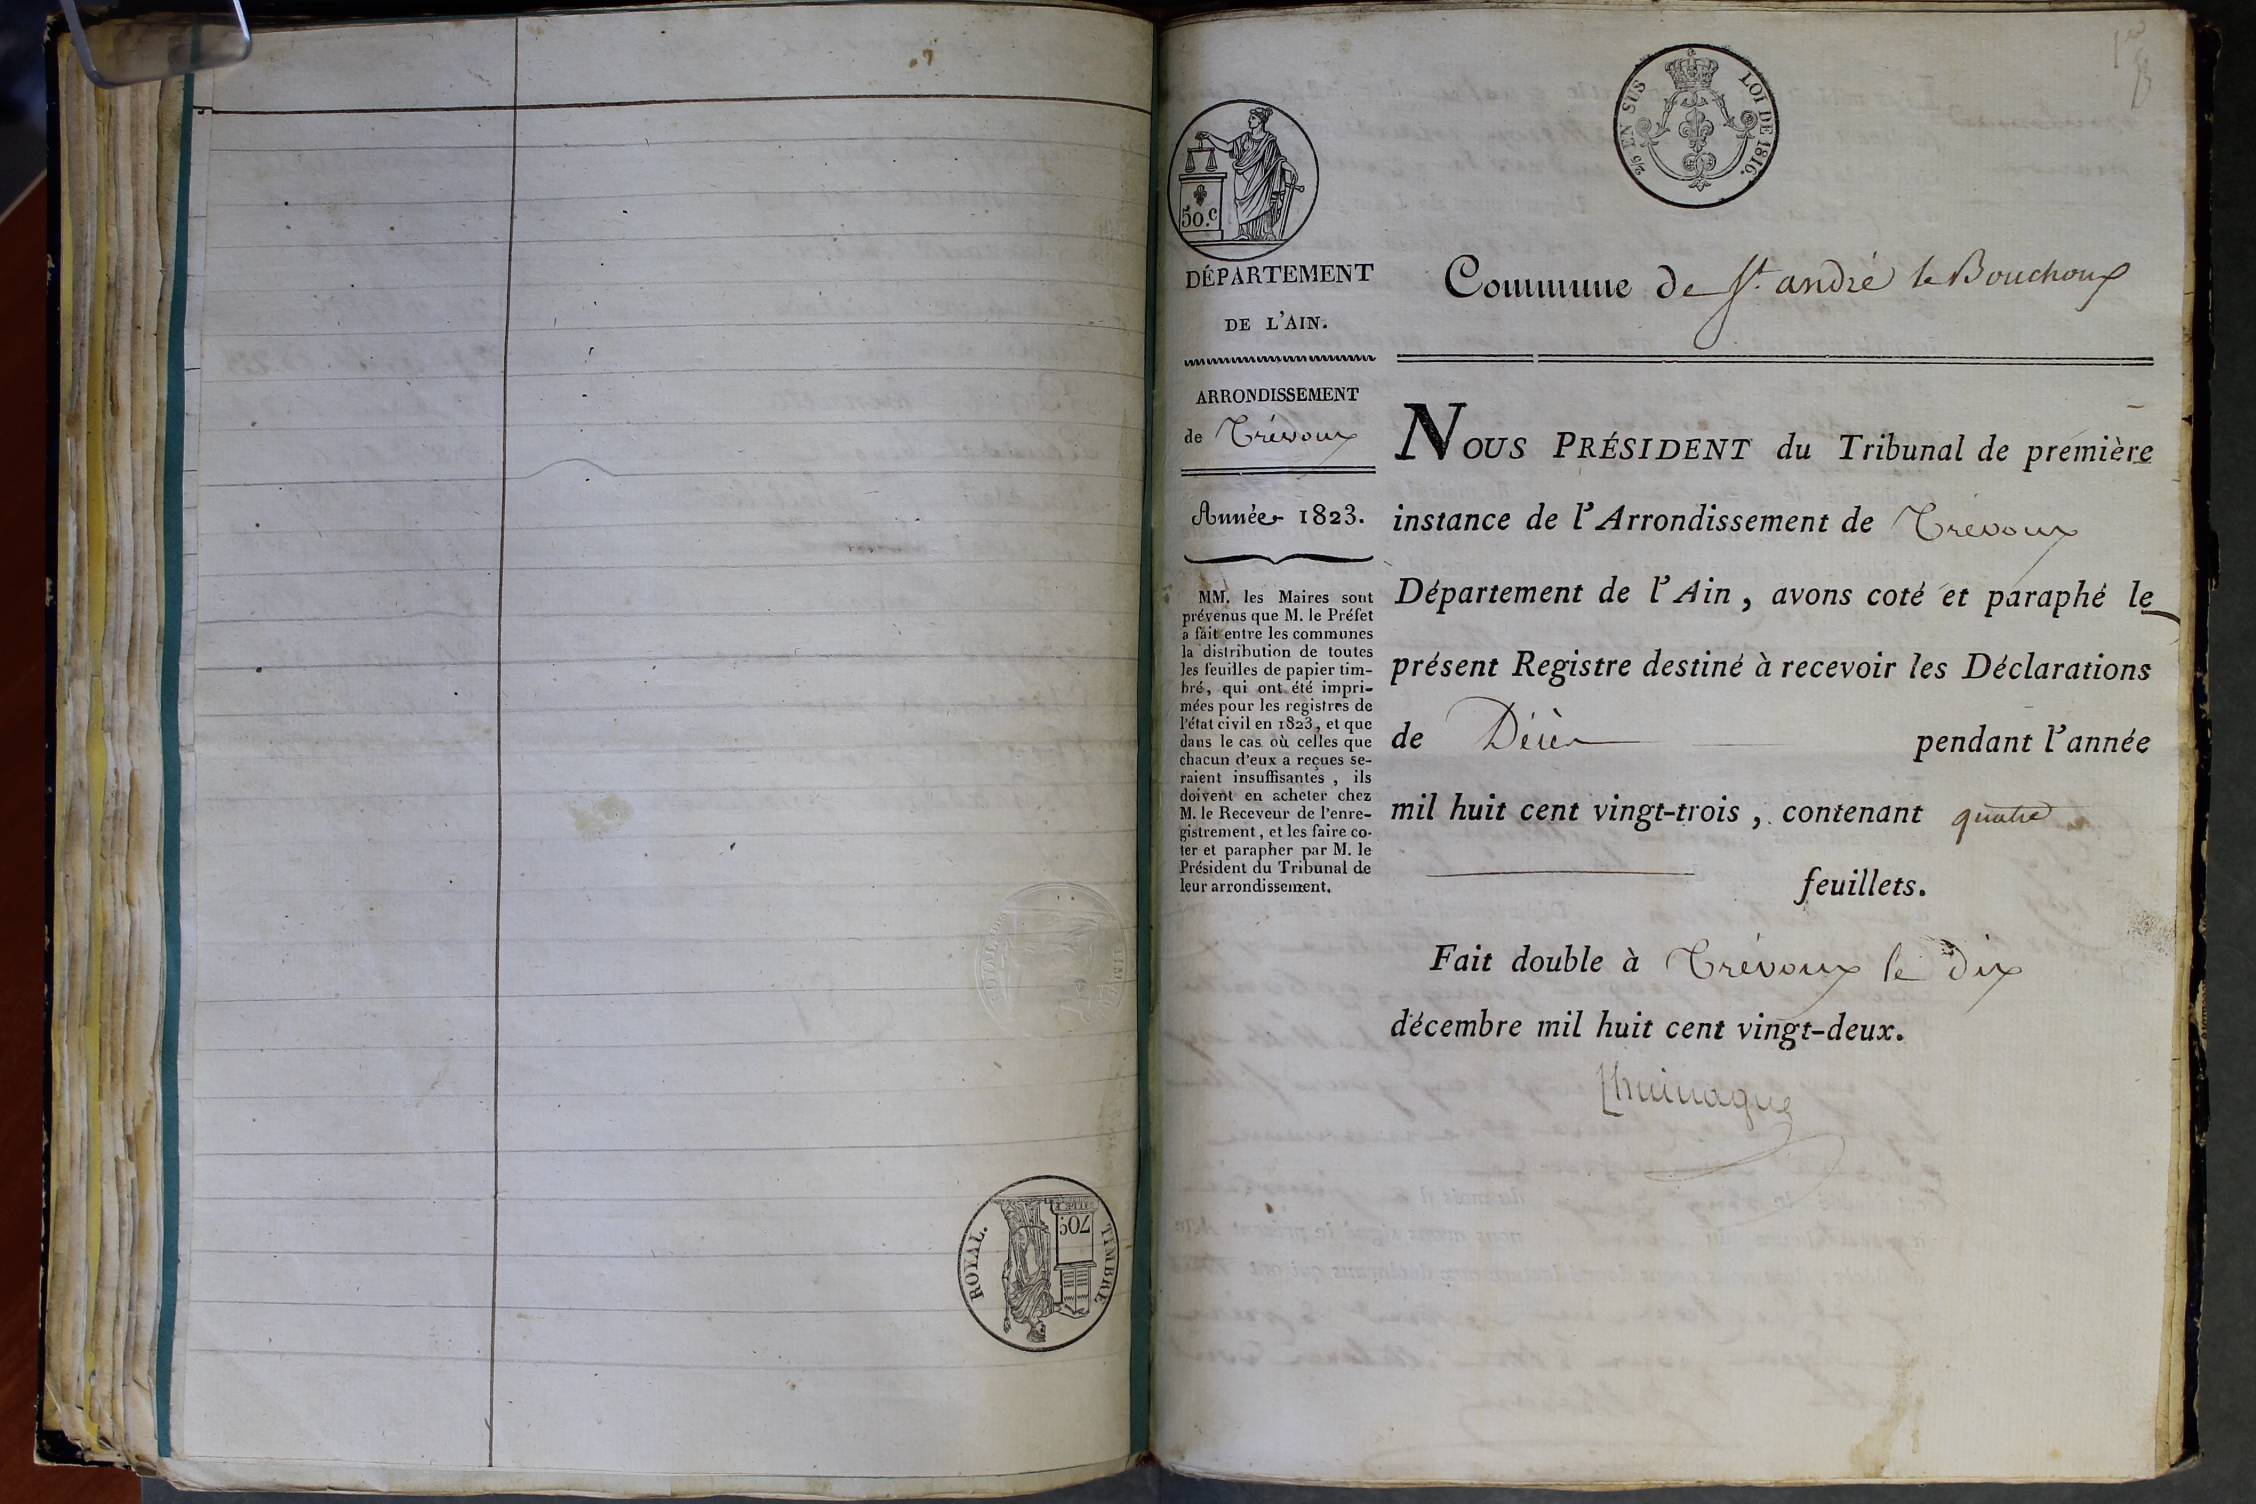 ROYAL.
TIMBRE
70c
1er
2/5 EN SUS
LOI DE 1816.
50.c
DÉPARTEMENT
DE L'AIN.
ARRONDISSEMENT
de Trévoux
Année 1823.
MM. les Maires sont
prévenus que M. le Préfet
a fait entre les communes
la distribution de toutes
les feuilles de papier tim-
bré, qui ont été impri-
mées pour les registres de
l'état civil en 1823, et que
dans le cas où celles que
chacun d'eux a reçues se-
raient insuffisantes, ils
doivent en acheter chez
M. le Receveur de l'enre-
gistrement, et les faire co-
ter et parapher par M. le
Président du Tribunal de
leur arrondissement.
Commune de St. andré le Bouchoux
NOUS PRÉSIDENT du Tribunal de première
instance de l'Arrondissement de Trévoux
Département de l'Ain, avons coté et paraphé le
présent Registre destiné à recevoir les Déclarations
de Décès pendant l'année
mil huit cent vingt-trois, contenant quatre
feuillets.
Fait double à Trévoux le dix
décembre mil huit cent vingt-deux.